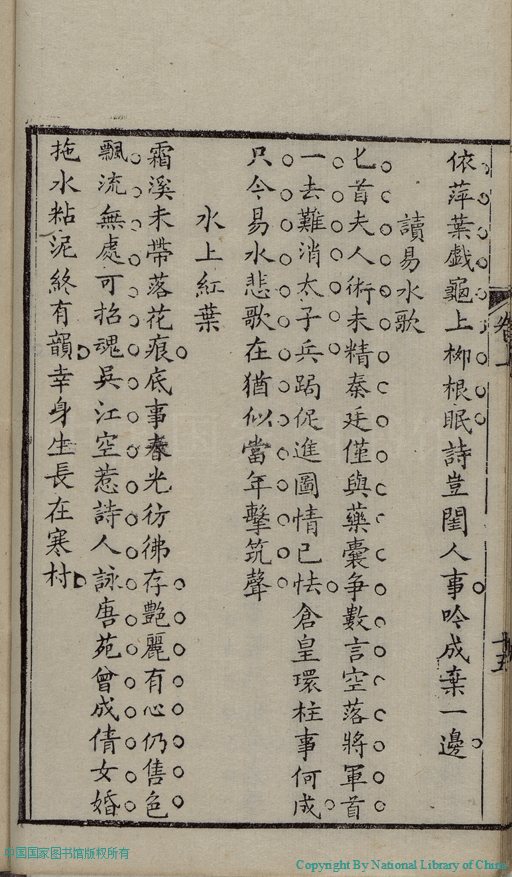 依萍葉戲龜上柳根眠詩豈閨人事吟成棄一邊
讀易水歌
匕首夫人術未精秦廷僅與藥囊爭數言空落將軍首
一去難消太子兵跼促進圖情已怯倉皇環柱事何成
只今易水悲歌在猶似當年擊筑聲
水上紅葉
霜溪未帶落花痕底事春光彷彿存艷麗有心仍售色
飄流無處可招魂吳江空惹詩人詠唐苑曾成倩女婚
拖水粘泥終有韻幸身生長在寒村
十五
中国国家图书馆版权所有
Copyright By National Library of China